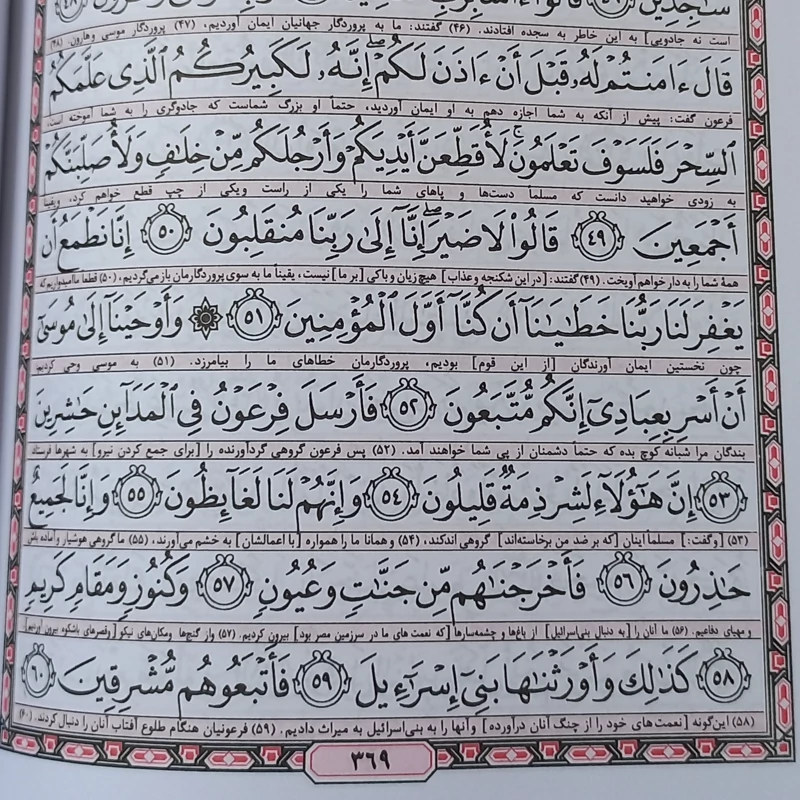 است نه جادویی] به این خاطر به سجده افتادند. (۴۶) گفتند: ما به پروردگار جهانیان ایمان آوردیم، (۴۷) پروردگار موسی وهارون. (۴۸)
قَالَ ءَامَنتُمْ لَهُۥ قَبْلَ أَنْ ءَاذَنَ لَكُمْ ۖ إِنَّهُۥ لَكَبِيرُكُمُ ٱلَّذِى عَلَّمَكُمُ
فرعون گفت: پیش از آنکه به شما اجازه دهم به او ایمان آوردید، حتماً او بزرگ شماست که جادوگری را به شما آموخته است،
ٱلسِّحْرَ فَلَسَوْفَ تَعْلَمُونَ ۚ لَأُقَطِّعَنَّ أَيْدِيَكُمْ وَأَرْجُلَكُم مِّنْ خِلَـٰفٍ وَلَأُصَلِّبَنَّكُمْ
به زودی خواهید دانست که مسلماً دست‌ها و پاهای شما را یکی از راست ویکی از چپ قطع خواهم کرد، ویقیناً
أَجْمَعِينَ ۴۹ قَالُوا۟ لَا ضَيْرَ ۖ إِنَّآ إِلَىٰ رَبِّنَا مُنقَلِبُونَ ۵۰ إِنَّا نَطْمَعُ أَن
همهٔ شما را به دار خواهم آویخت. (۴۹) گفتند: [در این شکنجه و عذاب] هیچ زیان و باکی [بر ما] نیست، یقیناً ما به سوی پروردگارمان بازمی‌گردیم، (۵۰) قطعاً ما امیدواریم که
يَغْفِرَ لَنَا رَبُّنَا خَطَـٰيَـٰنَآ أَن كُنَّآ أَوَّلَ ٱلْمُؤْمِنِينَ ۵۱ ۞ وَأَوْحَيْنَآ إِلَىٰ مُوسَىٰٓ
چون نخستین ایمان آورندگان [از این قوم] بودیم، پروردگارمان خطاهای ما را بیامرزد. (۵۱) به موسی وحی کردیم:
أَنْ أَسْرِ بِعِبَادِىٓ إِنَّكُم مُّتَّبَعُونَ ۵۲ فَأَرْسَلَ فِرْعَوْنُ فِى ٱلْمَدَآئِنِ حَـٰشِرِينَ
بندگان مرا شبانه کوچ بده که حتماً دشمنان از پی شما خواهند آمد. (۵۲) پس فرعون گروهی گردآورنده را [برای جمع کردن نیرو] به شهرها فرستاد
۵۳ إِنَّ هَـٰٓؤُلَآءِ لَشِرْذِمَةٌ قَلِيلُونَ ۵۴ وَإِنَّهُمْ لَنَا لَغَآئِظُونَ ۵۵ وَإِنَّا لَجَمِيعٌ
(۵۳) [وگفت:] مسلماً اینان [که بر ضد من برخاسته‌اند] گروهی اندکند، (۵۴) وهمانا ما را همواره [با اعمالشان] به خشم می‌آورند، (۵۵) ما گروهی هوشیار و آماده باش
حَـٰذِرُونَ ۵۶ فَأَخْرَجْنَـٰهُم مِّن جَنَّـٰتٍ وَعُيُونٍ ۵۷ وَكُنُوزٍ وَمَقَامٍ كَرِيمٍ
و مهیای دفاعیم. (۵۶) ما آنان را [به دنبال بنی‌اسرائیل] از باغ‌ها و چشمه‌سارها [که نعمت های ما در سرزمین مصر بود] بیرون کردیم. (۵۷) واز گنج‌ها ومکان‌های نیکو
۵۸ كَذَٰلِكَ وَأَوْرَثْنَـٰهَا بَنِىٓ إِسْرَٰٓءِيلَ ۵۹ فَأَتْبَعُوهُم مُّشْرِقِينَ ۶۰
(۵۸) این‌گونه [نعمت‌های خود را از چنگ آنان درآورده] و آنها را به بنی‌اسرائیل به میراث دادیم. (۵۹) فرعونیان هنگام طلوع آفتاب آنان را دنبال کردند. (۶۰)
۳۶۹